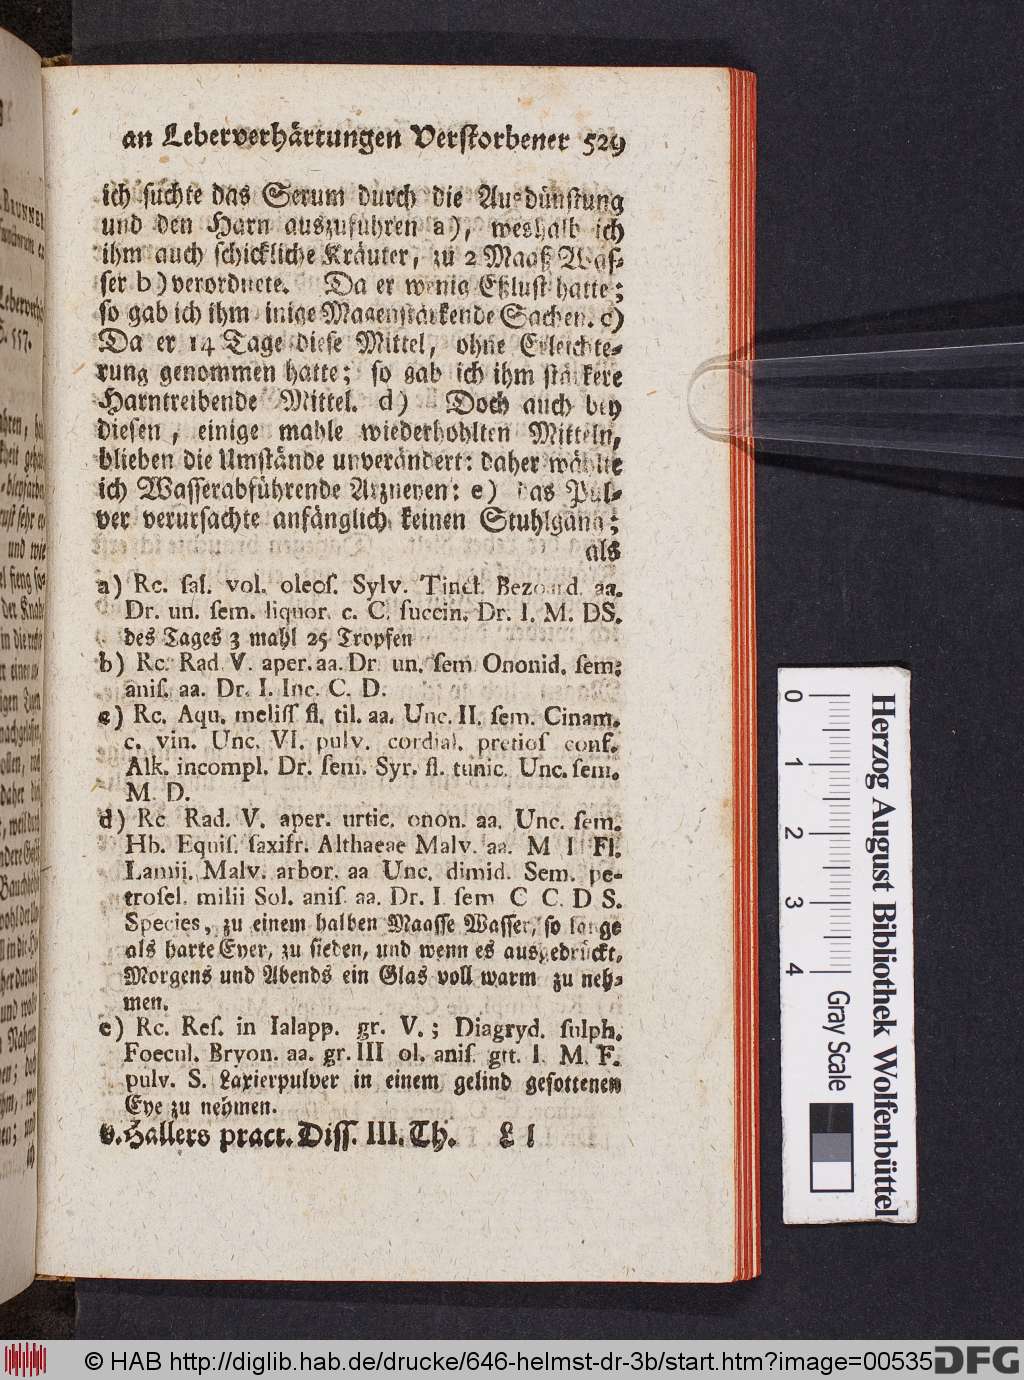 an Leberverhärtungen Verstorbener 529
ich suchte das Serum durch die Ausdünstung
und den Harn auszuführen a), weshalb ich
ihm auch schickliche Kräuter, zu 2 Maaß Was-
ser b) verordnete. Da er wenig Eßlust hatte;
so gab ich ihm einige Magenstärkende Sachen. c)
Da er 14 Tage diese Mittel, ohne Erleichte-
rung genommen hatte; so gab ich ihm stärkere
Harntreibende Mittel. d) Doch auch bey
diesen, einige mahle wiederhohlten Mitteln,
blieben die Umstände unverändert: daher wählte
ich Wasserabführende Arzneyen: e) das Pul-
ver verursachte anfänglich keinen Stuhlgang;
als
a) Rc. sal. vol. oleos. Sylv. Tinct. Bezoard. aa.
Dr. un. sem. liquor. c. C. succin. Dr. I. M. DS.
des Tages 3 mahl 25 Tropfen
b) Rc. Rad V. aper. aa. Dr. un. sem Ononid. sem.
anis. aa. Dr. I. Inc. C. D.
c) Rc. Aqu. meliss fl. til. aa. Unc. II. sem. Cinam.
c. vin. Unc. VI. pulv. cordial. pretios conf.
Alk. incompl. Dr. sem. Syr. fl. tunic. Unc. sem.
M. D.
d) Rc Rad. V. aper. urtic. onon. aa. Unc. sem.
Hb. Equis. saxifr. Althaeae Malv. aa. M I Fl.
Lamii. Malv. arbor. aa Unc. dimid. Sem. pe-
trosel. milii Sol. anis aa. Dr. I sem C C. D S.
Species, zu einem halben Maasse Wasser, so lange
als harte Eyer, zu sieden, und wenn es ausgedrückt,
Morgens und Abends ein Glas voll warm zu neh-
men.
e) Rc. Res. in Ialapp. gr. V.; Diagryd. sulph.
Foecul. Bryon. aa. gr. III ol. anis. gtt. I. M. F.
pulv. S. Laxierpulver in einem gelind gesottenen
Eye zu nehmen.
v. Hallers pract. Diss. III. Th. L l
0 1 2 3 4
Gray Scale
Herzog August Bibliothek Wolfenbüttel
© HAB http://diglib.hab.de/drucke/646-helmst-dr-3b/start.htm?image=00535
DFG